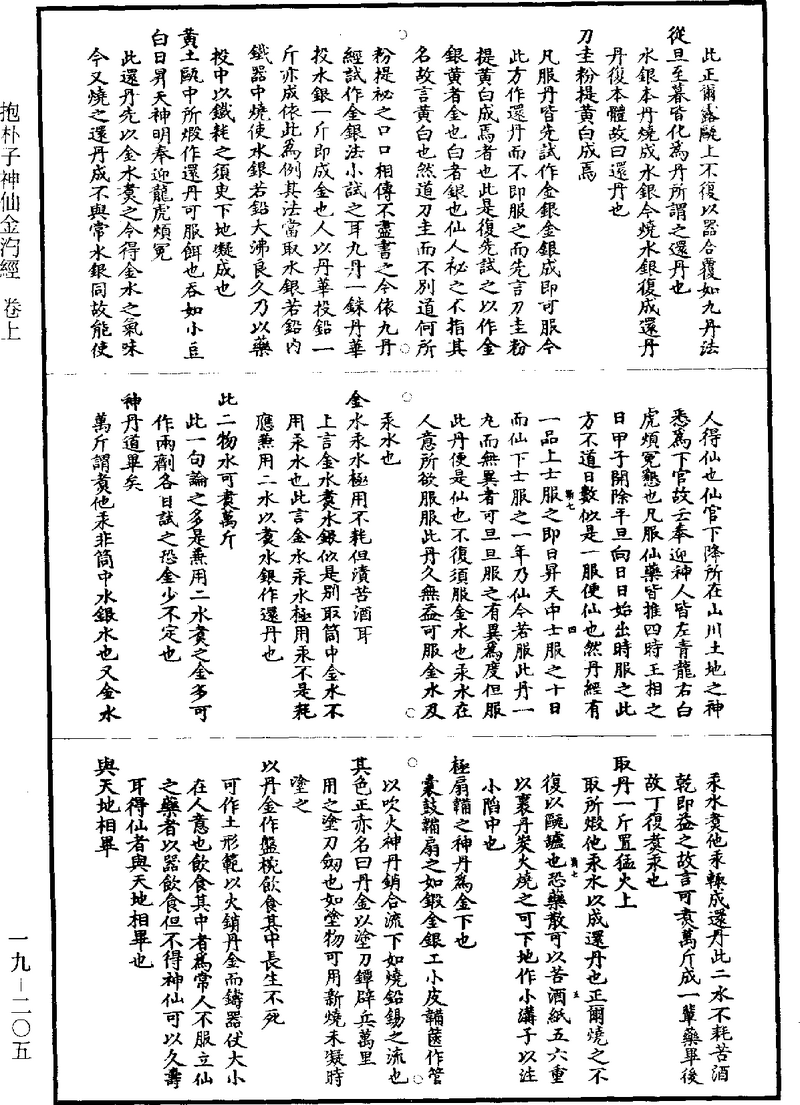 此正爾露甌上不復以器合覆如九丹法
從旦至暮皆化為丹所謂之還丹也
水銀本丹燒成水銀今燒水銀復成還丹
丹復本體故曰還丹也
刀圭粉提黃白成焉
凡服丹皆先試作金銀金銀成即可服今
此方作還丹而不即服之而先言刀圭粉
提黃白成焉者也此是復先試之以作金
銀黃者金也白者銀也仙人祕之不指其
名故言黃白也然道刀圭而不別道何所
粉提祕之口口相傳不盡書之今依九丹
經試作金銀法小試之耳九丹一銖丹華
投水銀一斤即成金也人以丹華投鉛一
斤亦成依此為例其法當取水銀若鉛內
鐵器中燒使水銀若鉛大沸良久乃以藥
投中以鐵耗之須臾下地凝成也
黃土甌中所煅作還丹可服餌也吞如小豆
白日昇天神明奉迎龍虎煩冤
此還丹先以金水煑之令得金水之氣味
今又燒之還丹成不與常水銀同故能使
人得仙也仙官下降所在山川土地之神
悉為下官故壬奉迎神人皆左青龍右白
虎煩冤懇也凡服仙藥皆推四時王相之
日甲子開除平旦向日日始出時服之此
方不道日數似是一服便仙也然丹經有
一品上士服之即日昇天中士服之十日
而仙下士服之一年乃仙今若服此丹一
九而無異者可旦旦服之有異為度但服
此丹便是仙也不復須服金水也汞水在
人意所欲服服此丹久無益可服金水及
汞水也
金水汞水極用不耗但漬苦酒耳
上言金水煑水銀似是別取筒中金水不
用汞水也此言金水汞水極用汞不是耗
應兼用二水以煑水銀作還丹也
此二物水可煑萬斤
此一句論之多是兼用二水煑之金多可
作兩劑各自試之恐金少不定也
神丹道畢矣
萬斤謂煑他汞非筒中水銀水也又金水
汞水煑他汞輙成還丹此二水不耗苦酒
乾即益之故言可煑萬斤成一輩藥畢後
故丁復煑汞也
取丹一斤置猛火上
取所煅他汞水以成還丹也正爾燒之不
復以甌壚也恐藥散可以苦酒紙五六重
以裹丹炭火燒之可下地作小溝子以注
小陷中也
極扇韛之神丹為金下也
橐鼓韛扇之如鍛金銀工小皮韛篋作管
以吹火神丹銷合流下如燒鉛錫之流也
其色正赤名曰丹金以塗刀鐔辟兵萬里
用之塗刀劒也如塗物可用新燒未凝時
塗之
以丹金作盤椀飲食其中長生不死
可作土形範以火銷丹金而鑄器仗大小
在人意也飲食其中者為常人不服立仙
之藥者以器飲食但不得神仙可以久壽
耳得仙者與天地相畢也
與天地相畢
抱朴子神仙金汋經 卷上
一九－二〇五